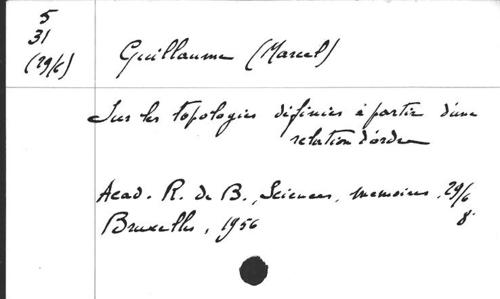 5
31
(29/6)
Guillaume (Marcel)
Sur les topologies définies à partir d'une
relation d'ordre
Acad. R. de B., Sciences, memoires, 29/6
8°
Bruxelles, 1956